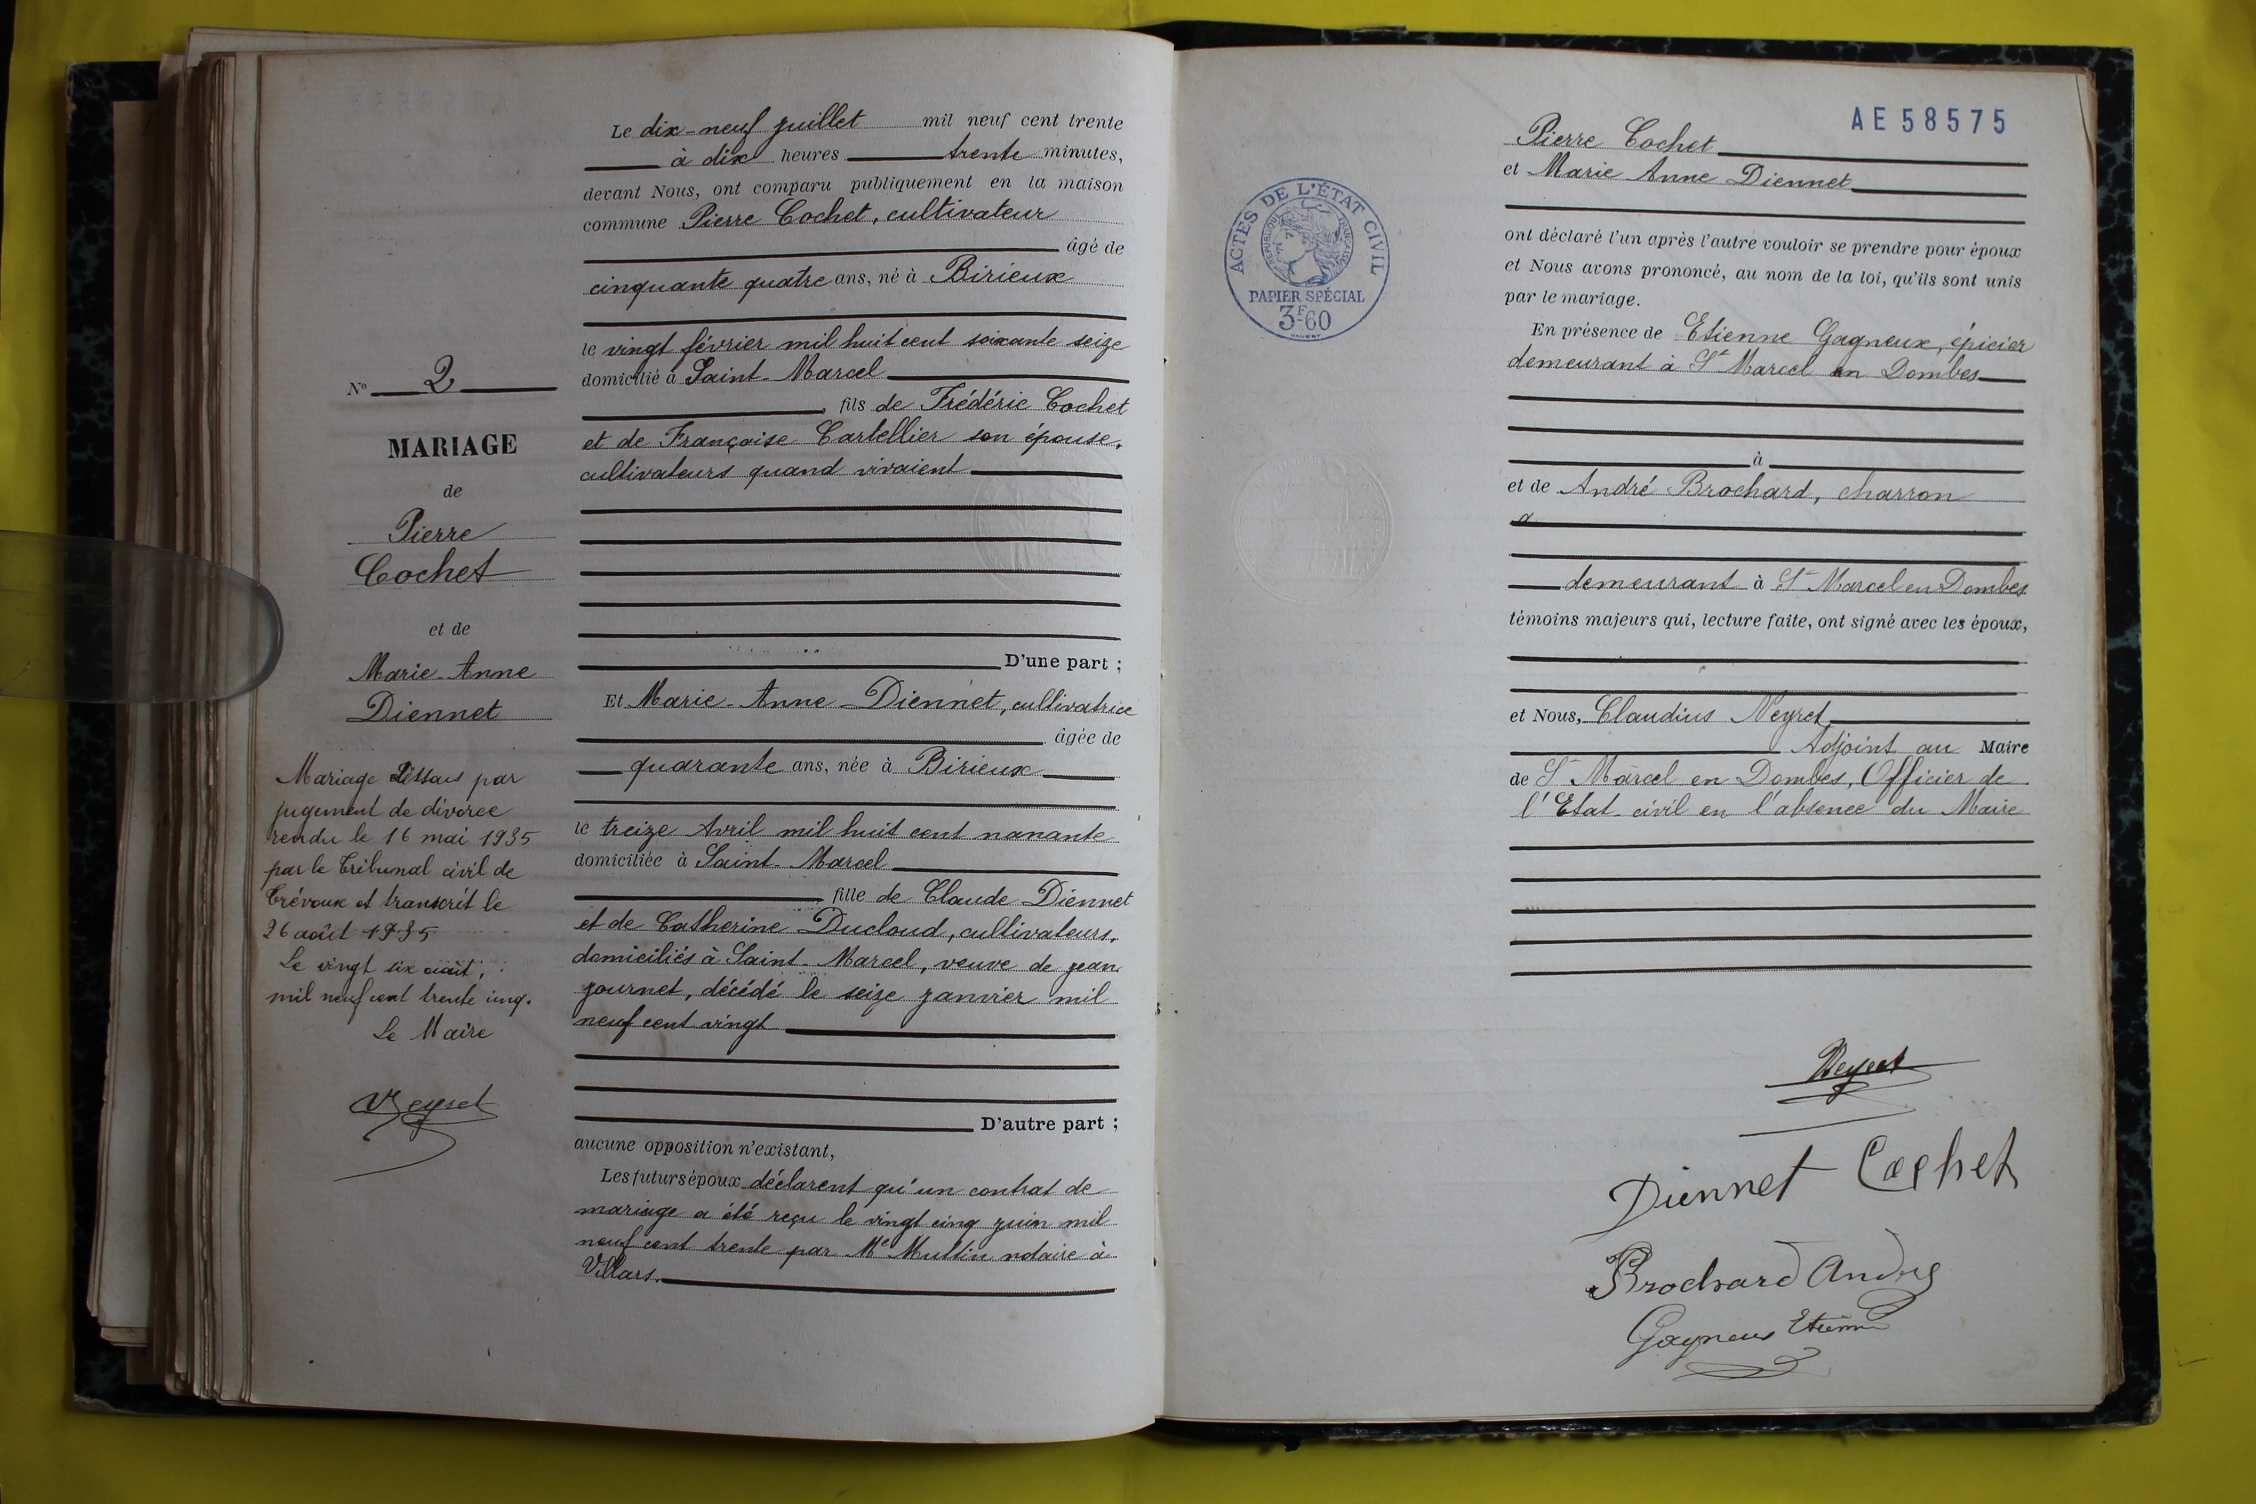 N° 2
MARIAGE
de
Pierre
Cochet
et de
Marie-Anne
Diennet
Mariage Dissous par
jugement de divorce
rendu le 16 mai 1935
par le Tribunal civil de
Trévoux et transcrit le
26 août 1935
Le vingt six août,
mil neuf cent trente cinq.
Le Maire
Neyret
Le dix-neuf juillet mil neuf cent trente
à dix heures trente minutes,
devant Nous, ont comparu publiquement en la maison
commune Pierre Cochet, cultivateur
âgé de
cinquante quatre ans, né à Birieux
le vingt février mil huit cent soixante seize
domicilié à Saint-Marcel
, fils de Frédéric Cochet
et de Françoise Cartellier son épouse,
cultivateurs quand vivaient
D'une part ;
Et Marie-Anne Diennet, cultivatrice
âgée de
quarante ans, née à Birieux
le treize Avril mil huit cent nonante
domiciliée à Saint-Marcel
, fille de Claude Diennet
et de Catherine Ducloud, cultivateurs,
domiciliés à Saint-Marcel, veuve de Jean
Journet, décédé le seize janvier mil
neuf cent vingt
D'autre part ;
aucune opposition n'existant,
Les futurs époux déclarent qu'un contrat de
mariage a été reçu le vingt cinq juin mil
neuf cent trente par Me Muttin notaire à
Villars.
AE 58575
ACTES DE L'ÉTAT CIVIL
RÉPUBLIQUE FRANÇAISE
PAPIER SPÉCIAL
3F60
Pierre Cochet
et Marie Anne Diennet
ont déclaré l'un après l'autre vouloir se prendre pour époux
et Nous avons prononcé, au nom de la loi, qu'ils sont unis
par le mariage.
En présence de Etienne Gagneux, épicier
demeurant à St Marcel en Dombes
à
et de André Brochard, charron
a
demeurant à St Marcel en Dombes
témoins majeurs qui, lecture faite, ont signé avec les époux,
et Nous, Claudius Neyret
Adjoint au Maire
de St Marcel en Dombes, Officier de
l'Etat-civil en l'absence du Maire
Neyret
Diennet Cochet
Brochard André
Gagneux Etienne